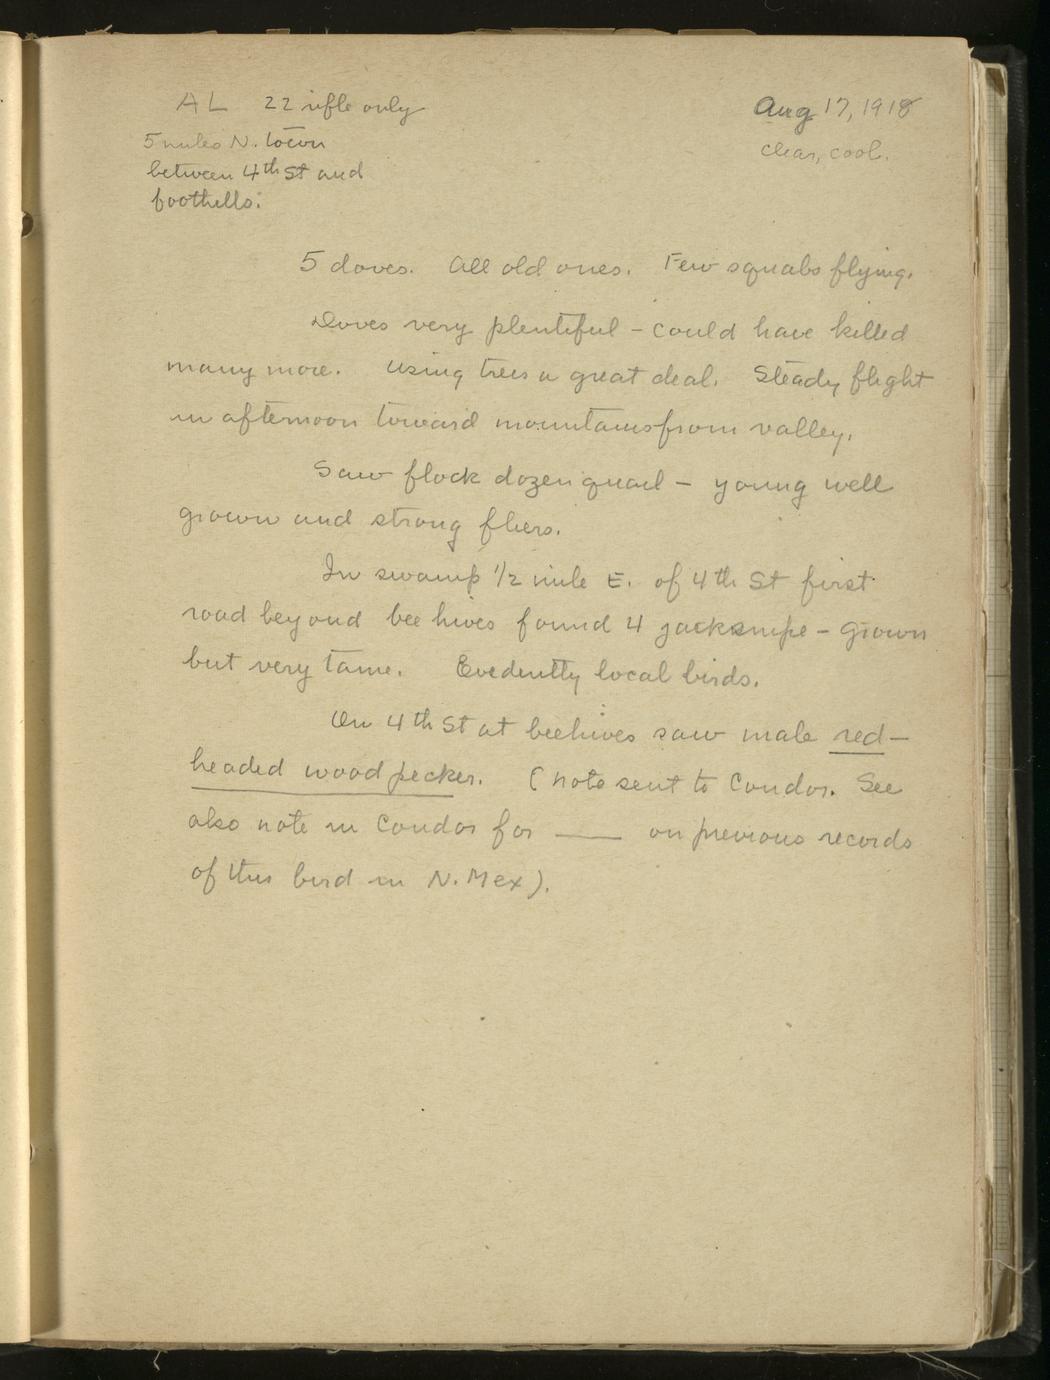 AL 22 rifle only
Aug 17, 1918
5 miles N. town
clear, cool.
between 4th St and
foothills:
5 doves. All old ones. Few squabs flying.
Doves very plentiful - could have killed
many more. Using trees a great deal. Steady flight
in afternoon toward mountains from valley.
Saw flock dozen quail - young well
grown and strong fliers.
In swamp 1/2 mile E. of 4th St first
road beyond bee hives found 4 jacksnipe - grown
but very tame. Evedently local birds.
On 4th St at beehives saw male red-
headed woodpecker. (note sent to Condor. See
also note in Condor for ___ on previous records
of this bird in N. Mex).